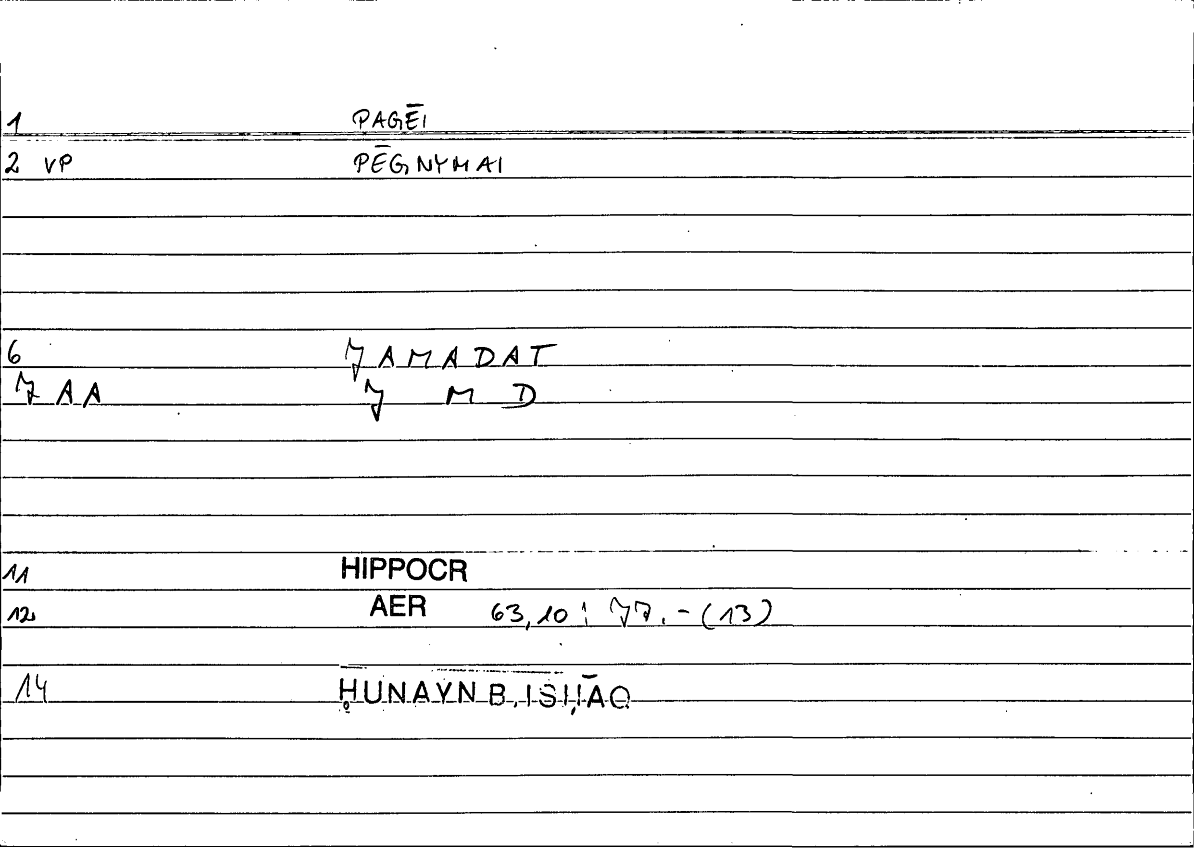 1 PAGĒI
2 VP PĒGNYMAI
6 AMADAT
7 AA M D
11 HIPPOCR
12 AER 63,10: .-(13)
14 ḤUNAYN B. ISḤĀQ